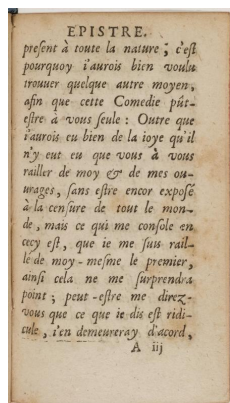 EPISTRE.
present à toute la nature ; c'est
pourquoy i'aurois bien voulu
trouuer quelque autre moyen,
afin que cette Comedie pût-
estre à vous seule : Outre que
i'aurois eu bien de la ioye qu'il
n'y eut eu que vous à vous
railler de moy & de mes ou-
urages, sans estre encor exposé
à la censure de tout le mon-
de, mais ce qui me console en
cecy est, que ie me suis rail-
lé de moy-mesme le premier,
ainsi cela ne me surprendra
point ; peut-estre me direz-
vous que ce que ie dis est ridi-
cule, i'en demeureray d'acord,
A iij